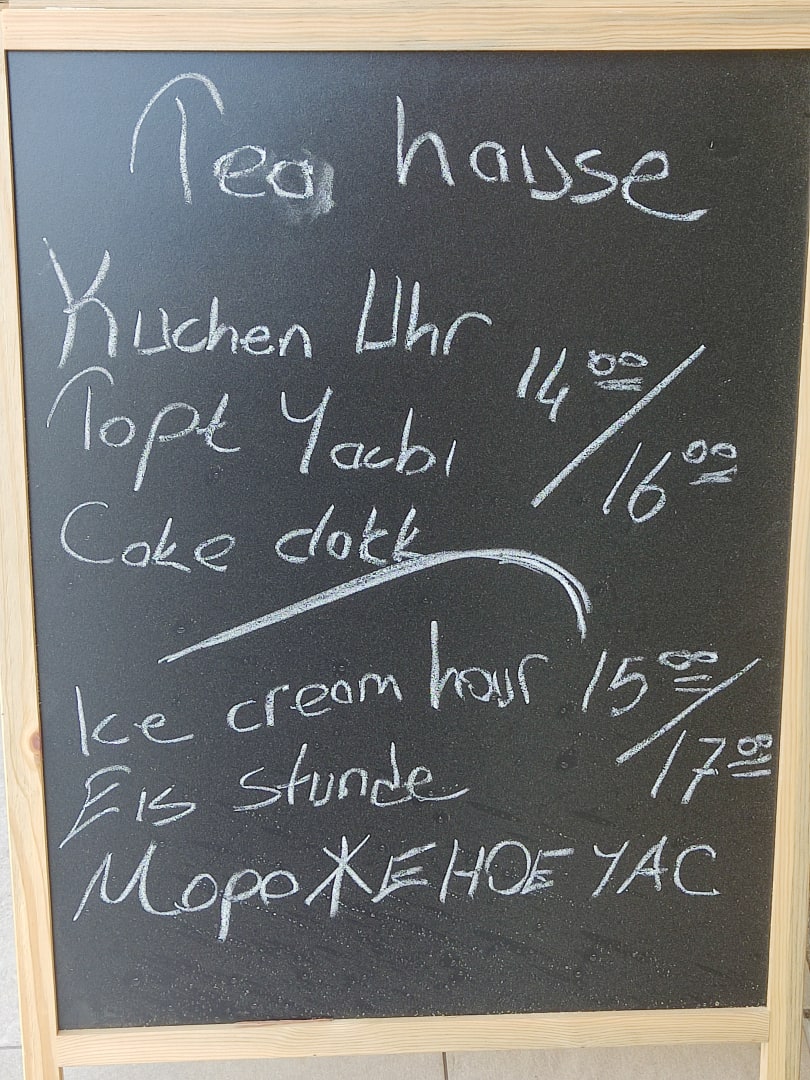 Tea house
Kuchen Uhr
Торт Часы
Cake clokk
14 00 / 16 00
Ice cream hour 15 00 / 17 00
Eis stunde
МороЖЕНОЕ ЧАС